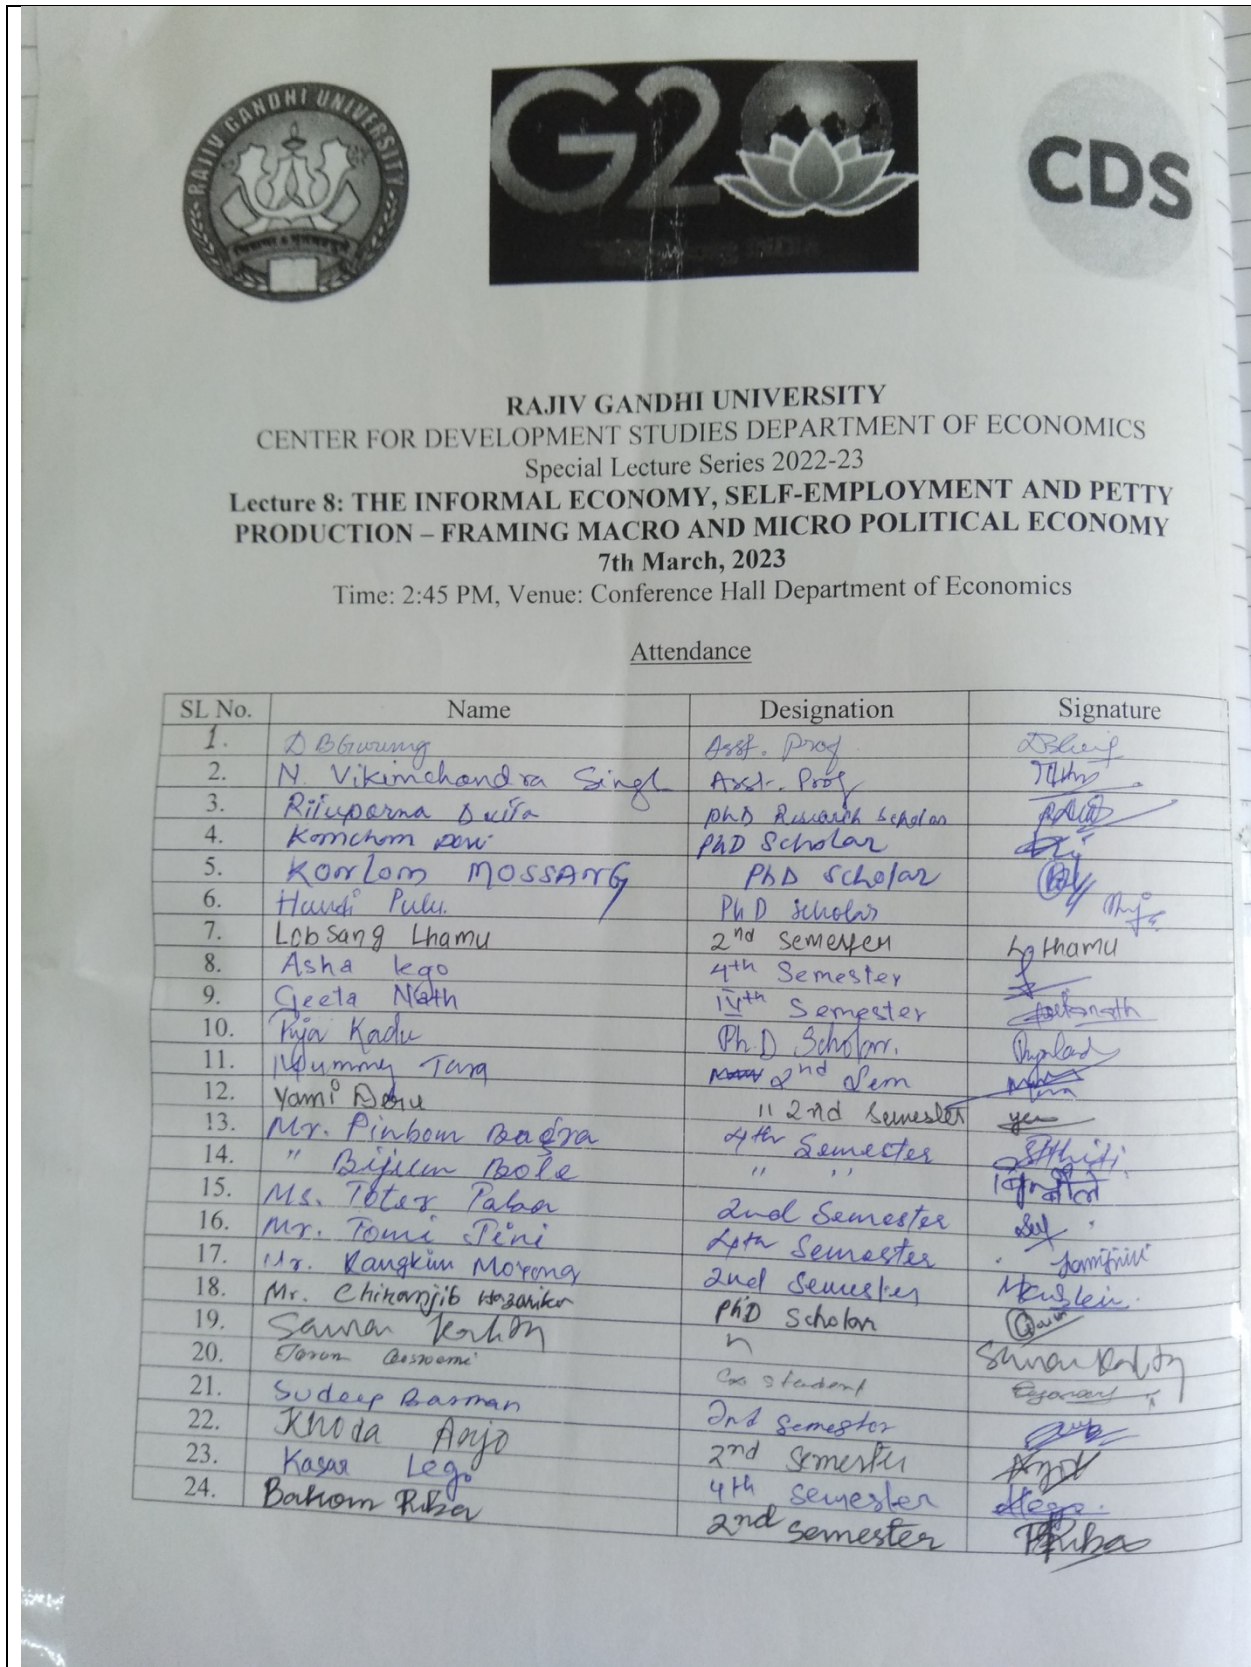 RAJIV GANDHI UNIVERSITY
G20
CDS
RAJIV GANDHI UNIVERSITY
CENTER FOR DEVELOPMENT STUDIES DEPARTMENT OF ECONOMICS
Special Lecture Series 2022-23
Lecture 8: THE INFORMAL ECONOMY, SELF-EMPLOYMENT AND PETTY
PRODUCTION – FRAMING MACRO AND MICRO POLITICAL ECONOMY
7th March, 2023
Time: 2:45 PM, Venue: Conference Hall Department of Economics
Attendance
SL No. Name Designation Signature
1. D B Gurung Asst. Prof
2. N. Vikimchandra Singh Asst. Prof
3. Rituparna Dutta PhD Research Scholar
4. Komchom PhD Scholar
5. Konlom MOSSANG PhD Scholar
6. Pulu PhD Scholar
7. Lobsang Lhamu 2nd Semester Lhamu
8. Asha lego 4th Semester
9. Geeta Nath IVth Semester
10. Kadu Ph.D Scholar.
11. Mummy Tara 2nd Sem
12. Yami " 2nd Semester
13. Mr. Pinbom Bagra 4th Semester
14. " Bijum Bole " "
15. Ms. Toter 2nd Semester
16. Mr. Tomi Jini 4th Semester
17. Mr. Kangkim Moyong 2nd Semester
18. Mr. Chiranjib Hazarika PhD Scholar
19. "
20. Goswami Ex student
21. Sudeep Barman 2nd Semester
22. Khoda 2nd Semester
23. Kasar Lego 4th Semester
24. Bakom Riba 2nd Semester Riba